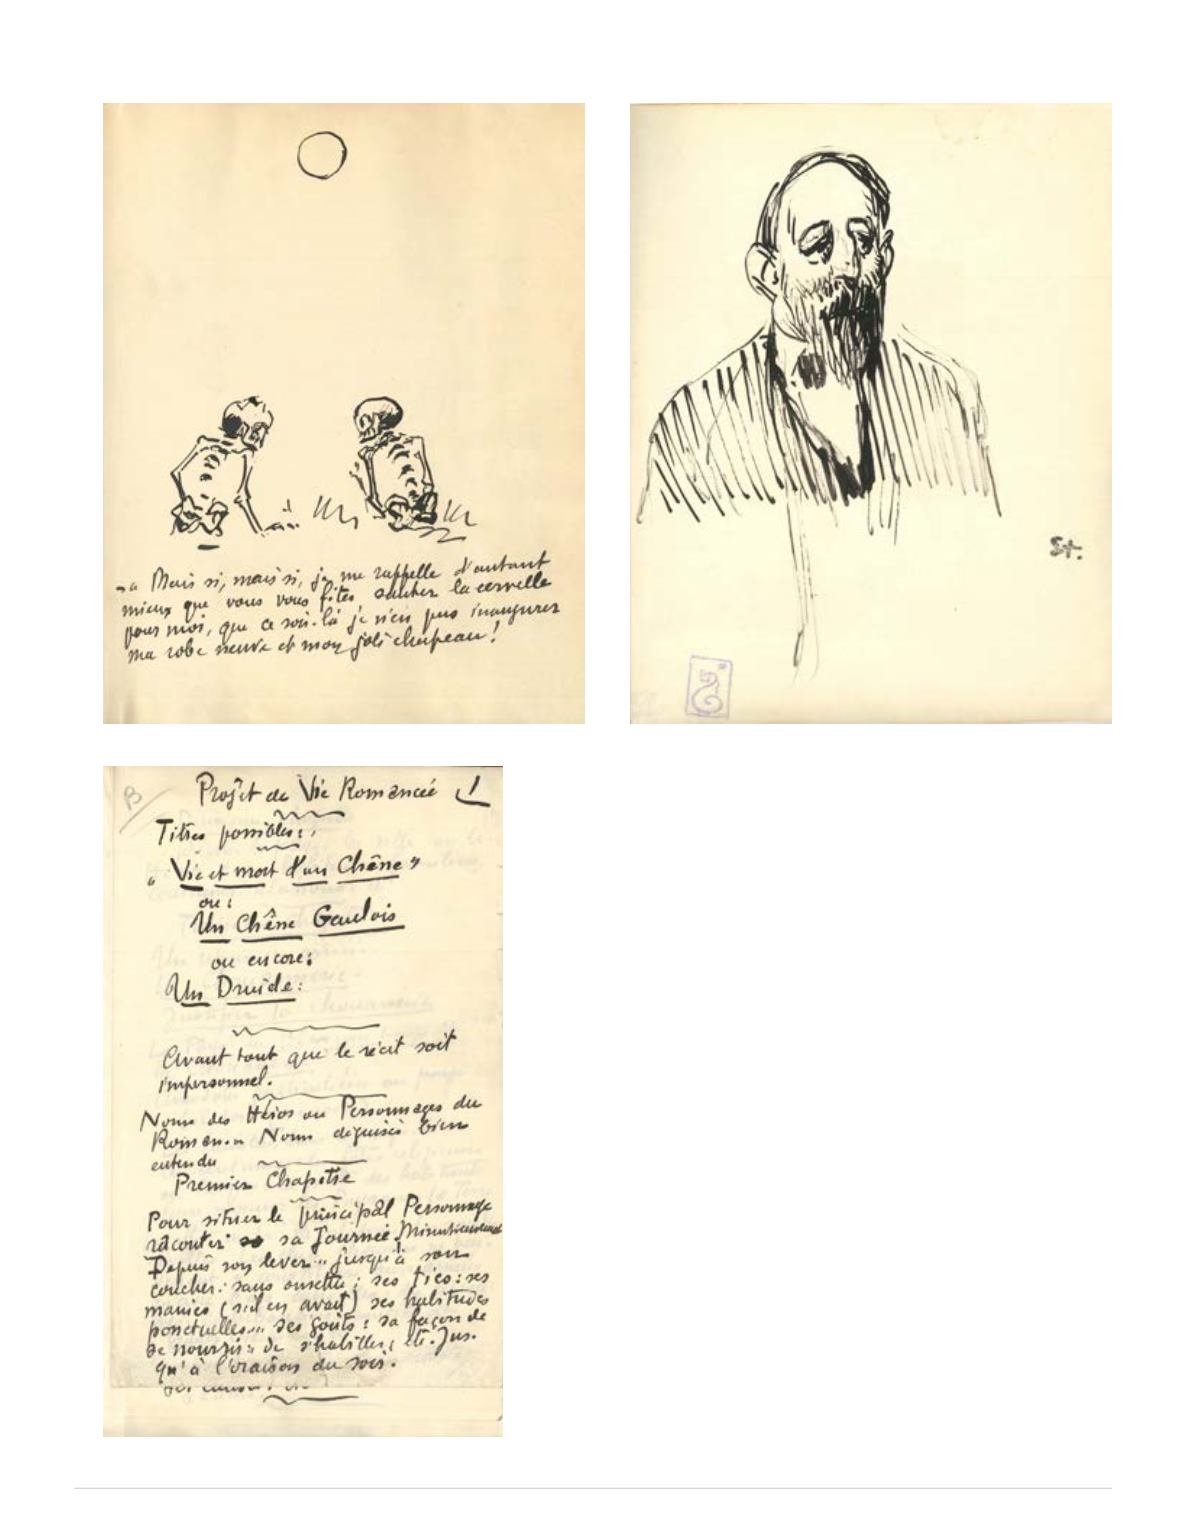 « Mais si, mais si, je me rappelle d'autant
mieux que vous vous fîtes sauter la cervelle
pour moi, que ce soir-là je n'en pus inaugurer
ma robe neuve et mon joli chapeau!
St.
B
Projet de Vie Romancée 1
Titres possibles:
"Vie et mort d'un Chêne"
ou:
Un Chêne Gaulois
ou encore:
Un Druide:
Avant tout que le récit soit
impersonnel.
Noms des Héros ou Personnages du
Roman.. Noms déguisés bien
entendu
Premier Chapitre
Pour situer le principal Personnage
raconter sa Journée
Depuis son lever... jusqu'à son
coucher: sans omettre: ses tics: ses
manies (s'il en avait) ses habitudes
ponctuelles... ses goûts: sa façon de
se nourrir: de s'habiller, etc. Jus-
qu'à l'oraison du soir.